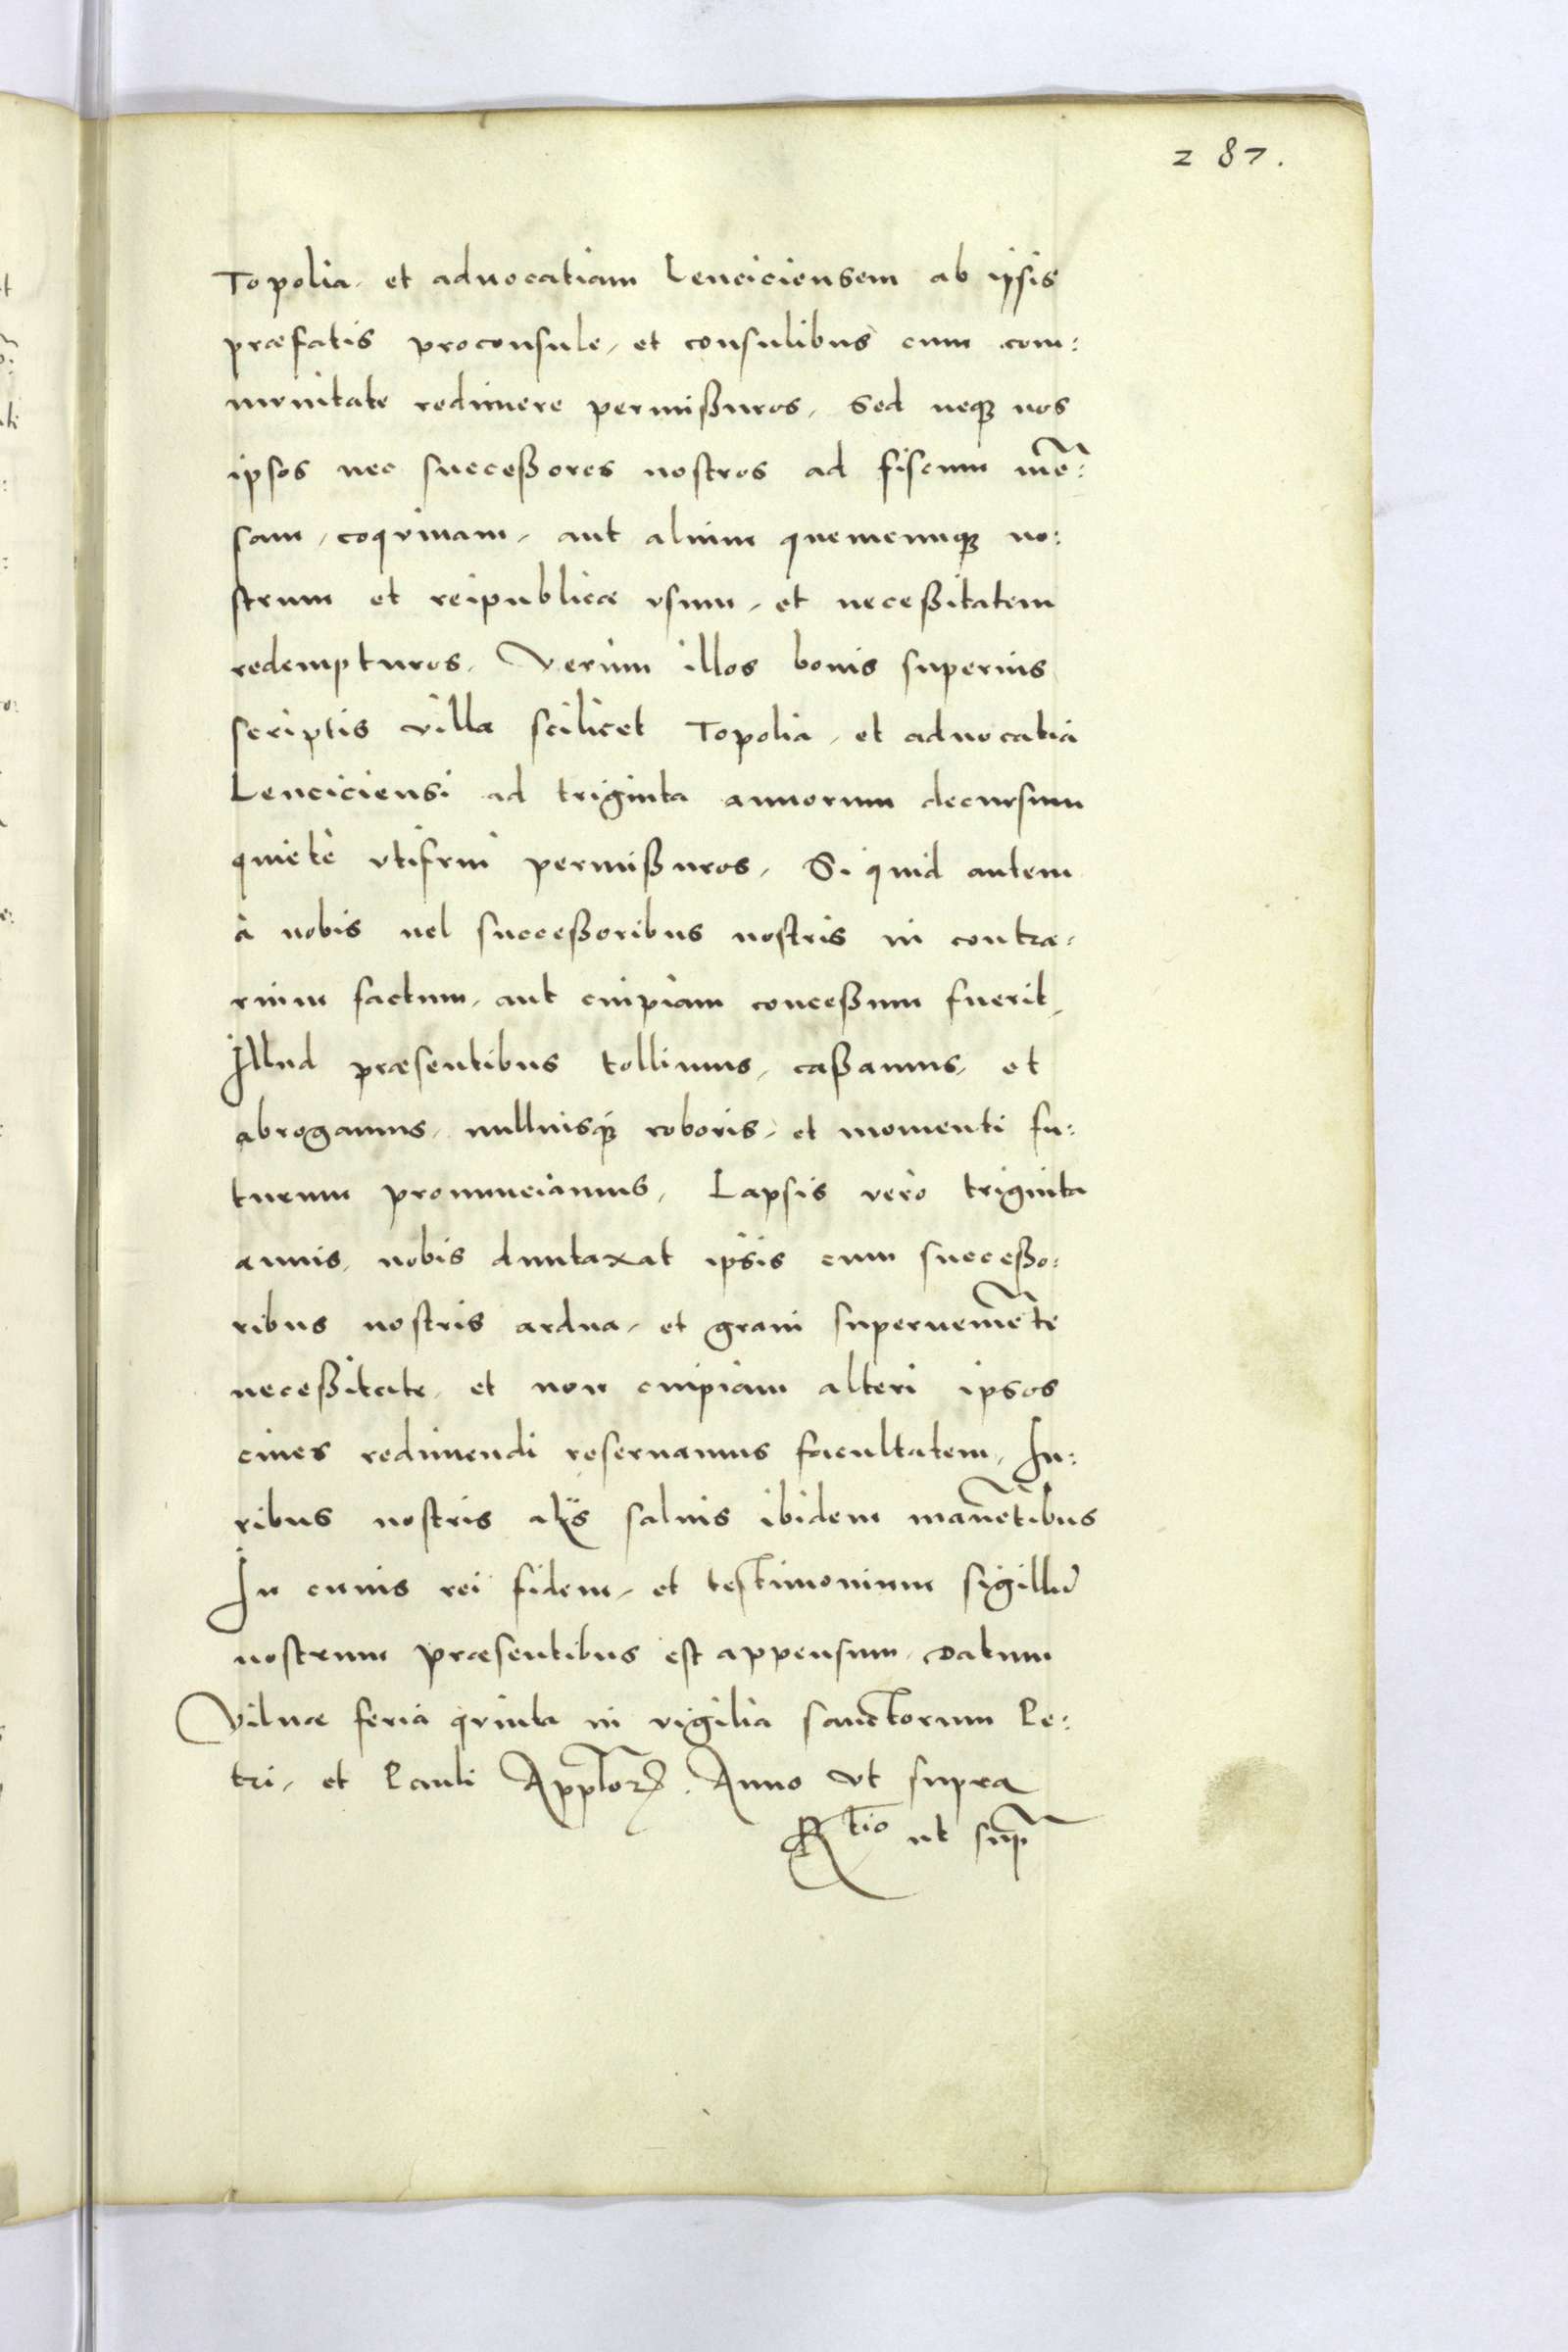 287.
Topolia, et aduocatiam Lenciciensem ab ipsis
præfatis proconsule, et consulibus cum com:
mvnitate redimere permißuros, Sed neqꝫ nos
ipsos nec succeßores nostros ad fiscum mẽ:
sam, coqvinam, aut alium quemcunqꝫ no:
strum et reipublicæ vsum, et neceßitatem
redempturos, Verùm illos bonis superius
scriptis villa scilicet Topolia, et aduocatia
Lenciciensi ad triginta annorum decursum
quietè vtifrui permißuros, Si quid autem
à nobis uel succeßoribus nostris in contra:
rium factum, aut cuipiam conceßum fuerit,
Illud præsentibus tollimus, caßamus, et
abrogamus, nulliusqꝫ roboris, et momenti fu:
turum pronunciamus, Lapsis verò triginta
annis, nobis duntaxat ipsis cum succeßo:
ribus nostris ardua, et graui superueniẽte
neceßitate, et non cuipiam alteri ipsos
ciues redimendi reseruamus facultatem, Iu:
ribus nostris alijs saluis ibidem manẽtibus
In cuius rei fidem, et testimonium sigillũ
nostrum præsentibus est appensum, Datum
Vilnæ feria qvinta in vigilia sanctorum Pe:
tri, et Pauli Applorꝝ. Anno vt supra
Rtio ut sup̃